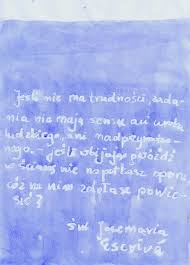 Jeśli nie ma trudności, zada-
nia nie mają sensu ani
ludzkiego, ani nadprzyrodzo-
nego. - Jeśli wbijając gwóźdź
w ścianę nie napotkasz oporu,
cóż na nim zdołasz powie-
sić?
św Josemaria
Escrivá